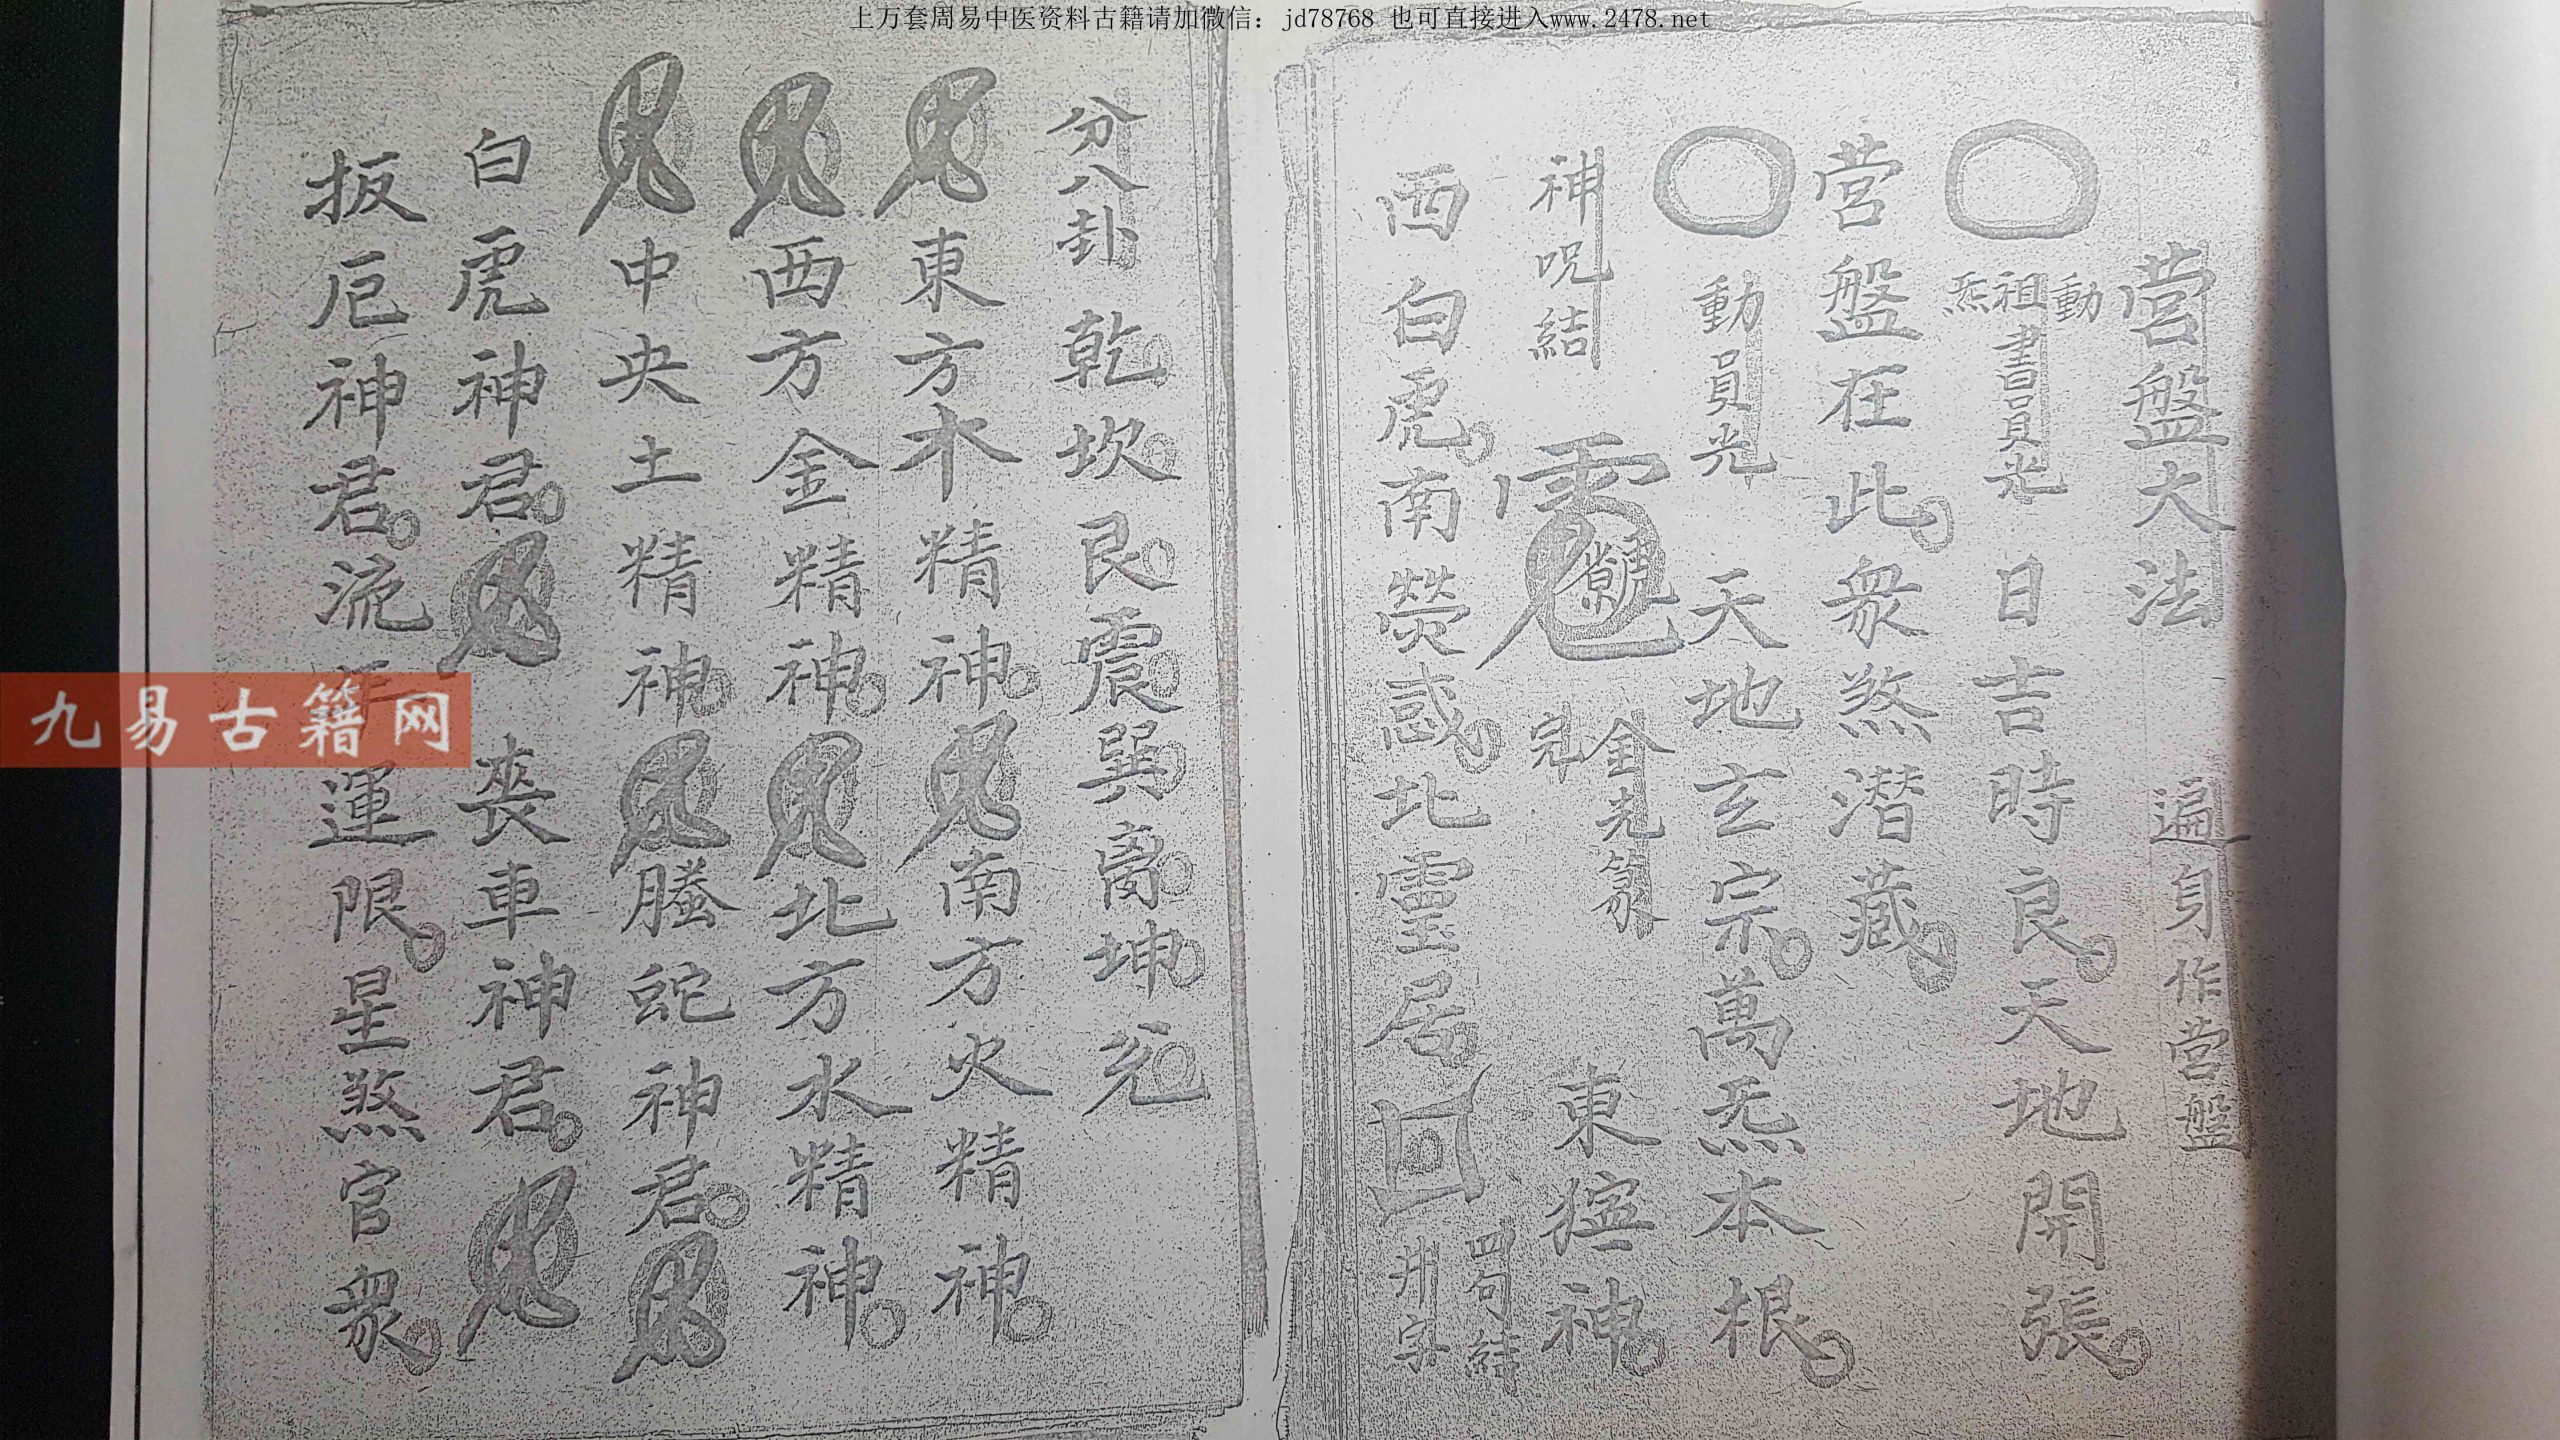 上万套周易中医资料古籍请加微信：jd78768 也可直接进入www.2478.net
营盤大法 遍身作营盤
動祖炁書員光 日吉時良天地開張
营盤在此眾煞潜藏
動員光 天地玄宗萬炁本根
神呪結 金光篆完 東猛神
西白虎南熒惑北靈居 四句結井字
分八卦 乾坎艮震巽离坤兑
東方木精神 南方火精神
西方金精神 北方水精神
中央土精神 螣蛇神君
白虎神君 丧車神君
扳厄神君流年運限星煞官眾
九易古籍网